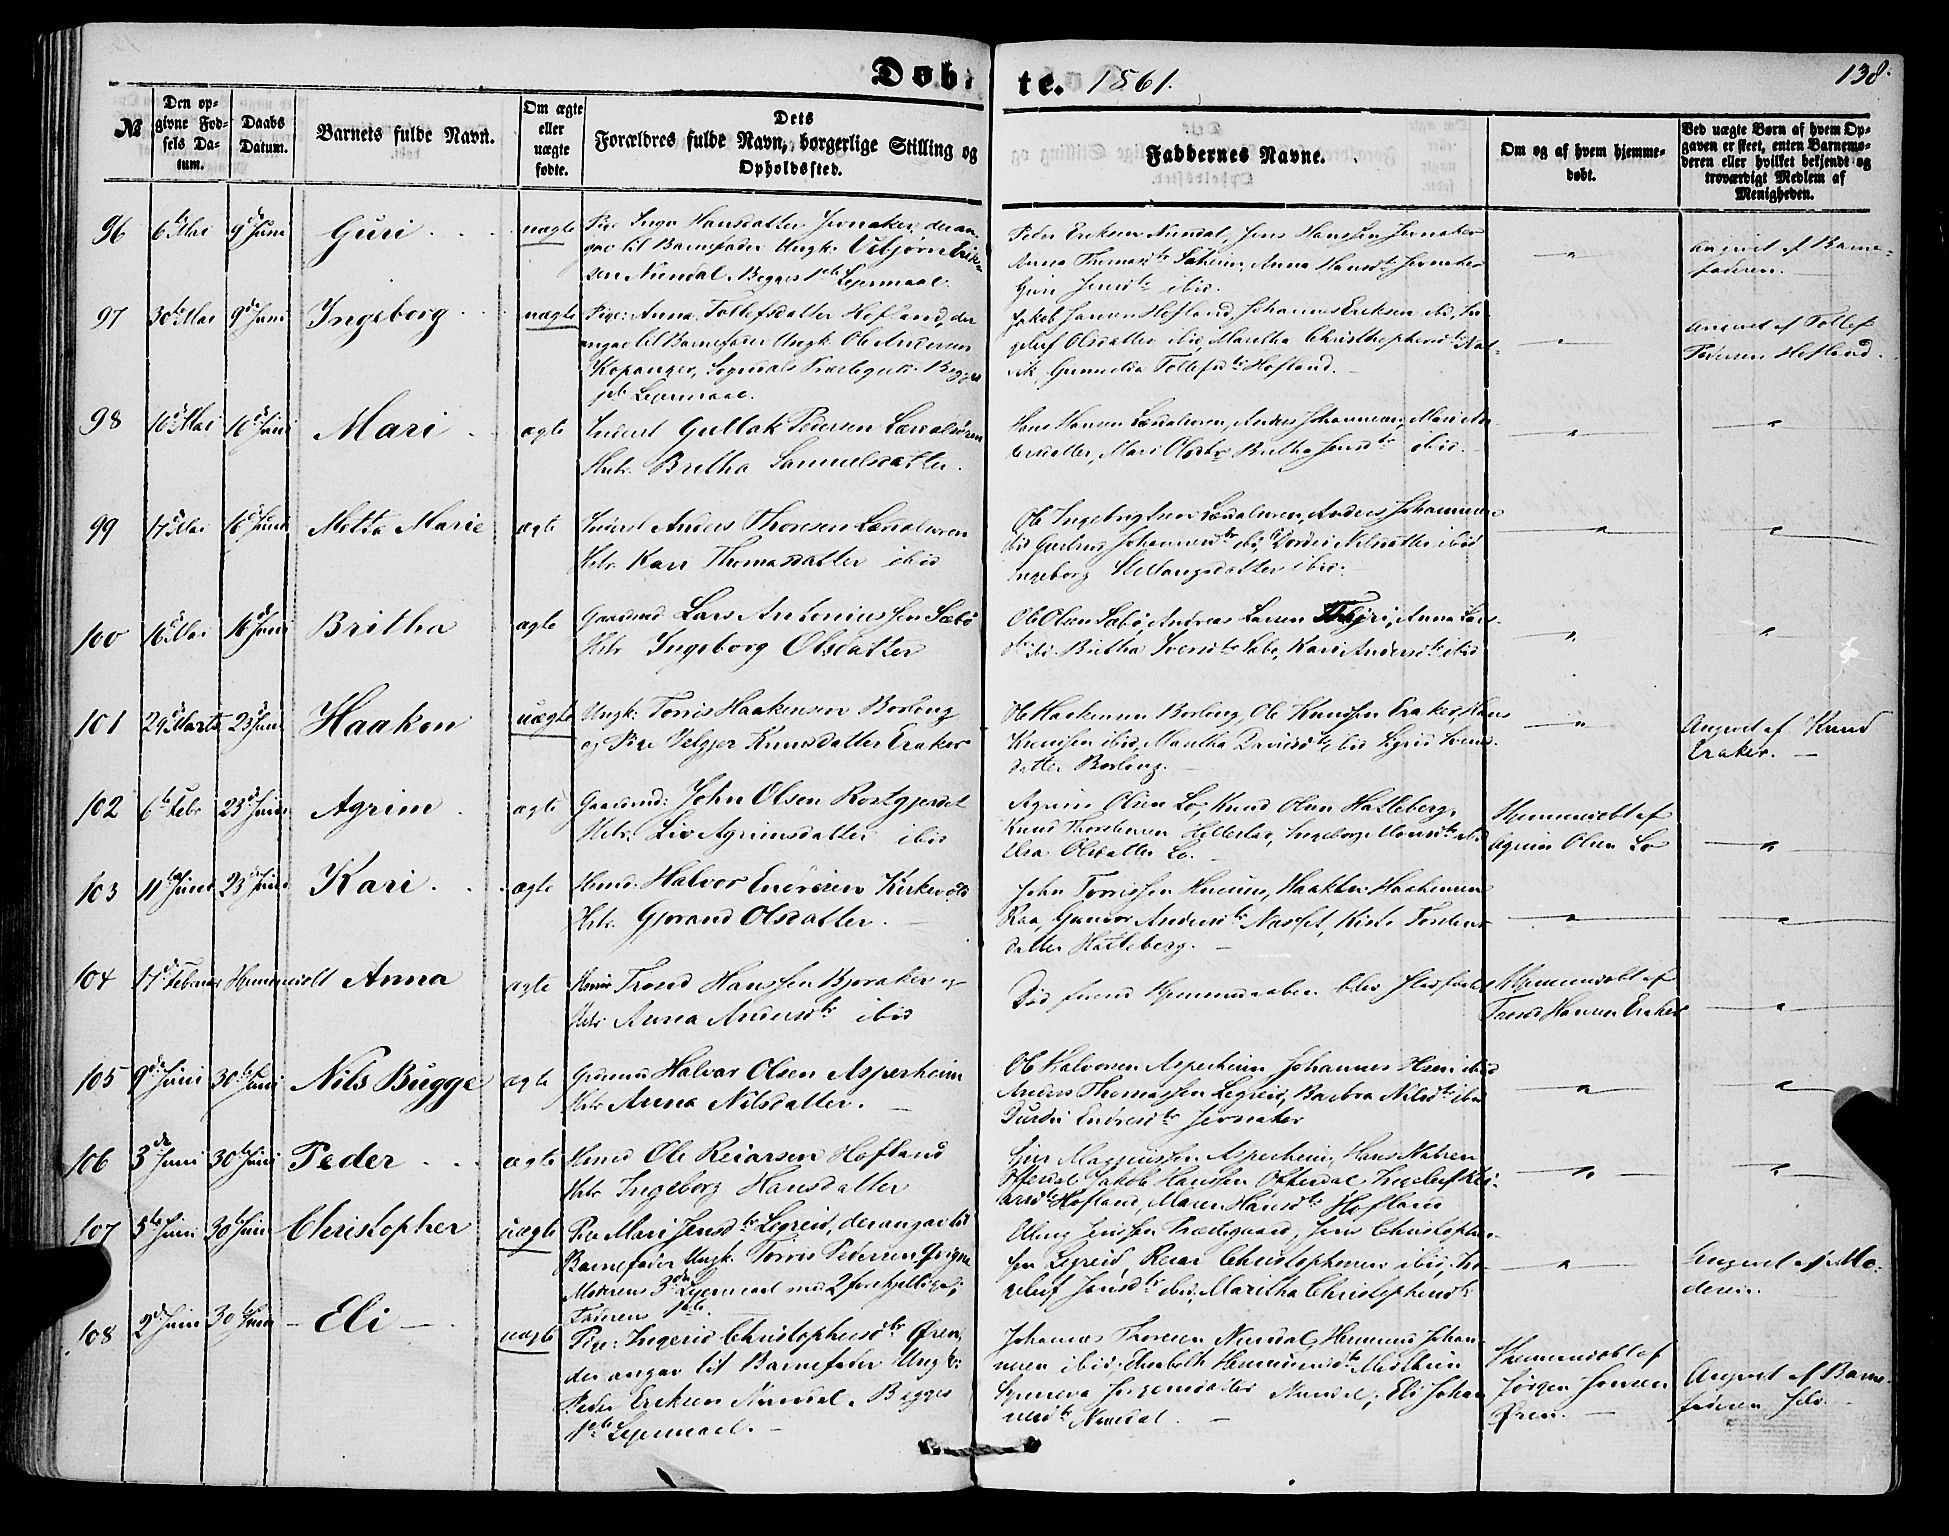 Døb-
te. 1861.
138.
№
Den op-
givne Fød-
sels Da-
tum.
Daabs
Datum.
Barnets fulde Navn.
Om ægte
eller
uægte
fødte.
Dets
Forældres fulde Navn, borgerlige Stilling og
Opholdssted.
Faddernes Navne.
Om og af hvem hjemme-
døbt.
Ved uægte Børn af hvem Op-
gaven er skeet, enten Barnemo-
deren eller hvilket bekjendt og
troværdigt Medlem af
Menigheden.
96 6te Mai 9de Juni Guri uægte Pige Inga Hansdatter Jernaker, der an-
gav til Barnefader Ungk. Vibjørn Erik-
sen Nundal. Begges 1ste Lejermaal.
Peder Eriksen Nundal, Jens Hanssen Jernaker
Anna Thomasdtr, Anna Hansdtr Jernaker
Guri Jensdtr ibid.
angivet af Barne-
faderen.
97 30te Mai 9de Juni Ingeborg uægte Pige: Anna Tollefsdatter Hofland, der
angav til Barnefader Ungk. Ole Andersen
Kopanger, Sogndals Præstegjeld. Begges
1ste Lejermaal.
Jakob Jansen Hofland, Johannes Eriksen ibid, In-
geluf Olsdatter ibid, Maritha Christophersdtr
Gunnilda Tollefsdtr Hofland.
Angivet af Tollef
Pedersen Hofland.
98 10de Mai 16de Juni Mari ægte Inderst Gullak Pedersen Lærdalsøren
Hstr. Britha Samuelsdatter.
Hans Hansen Lærdalsøren, Anders Johannesen, Mari An-
dersdatter, Mari Olsdtr Britha Jensdtr ibid.
99 17de Mai 16de Juni Metta Marie ægte Inderst Anders Thoresen Lærdalsøren
Hstr. Kari Thomasdatter ibid
Ole Ingebrigtsen Lærdalsøren, Anders Johannesen
ibid Gjertrud Johannesdtr ibid, Dordei Nilsdatter ibid
Ingeborg datter ibid.
100 16de Mai 16de Juni Britha ægte Gaardmd Lars Antoniussen Sæbø
Hstr Ingeborg Olsdatter
Ole Olsen Sæbø, Andreas Larsen, Anna Lars-
dtr ibid Britha Iversdtr Sæbø, Kari Andersdtr ibid
101 29de Marts 23de Juni Haakon uægte Ungk: Torris Haakensen Borlong
og Pige Velgjer Knudsdatter Eraker
Ole Haakensen Borlong, Ole Knudsen Eraker, Hans
Knudsen ibid, Martha Davidsdtr ibid Sigrid Svends-
datter Borlong.
Angivet af Knud
Eraker.
102 6te Febr 23de Juni Agrim ægte Gaardmd: John Olsen Rostgjerdet
Hstr. Liv Agrimsdatter ibid
Agrim Olsen Lo, Knud Olsen Hatleberg,
Knud Thorstensen, Ingeborg ibid
Olsdatter Lo.
Hjemmedøbt af
Agrim Olsen Lo
103 11te Juni 23de Juni Kari ægte Hmd. Halvor Endresen Kirkevold
Hstr. Gjørand Olsdatter.
John Torrissen, Haaken Haakensen
Raa, Gunvor Andersdtr Næsset, Kirsti Torstens-
datter Hatleberg.
104 17de Februar Hjemmedøbt Anna ægte Hmd Trond Hanssen Bjøraker og
Hstr Anna Andersdtr ibid
Død førend Hjemmedaaben blev stadfæstet
Hjemmedøbt af
Trond Hansen Eraker
105 9de Juni 30te Juni Nils Bugge ægte Grdmd Halvar Olsen Asperheim
Hstr Anna Nilsdatter.
Ole Halvorsen Asperheim Johannes ibid
Anders Thomassen Legreid, Barbra Nilsdtr ibid
Durdei Endresdtr Jernaker
106 3de Juni 30te Juni Peder ægte Hmd Ole Reiarsen Hofland
Hstr Ingeborg Hansdatter
Magnussen Asperheim, Hans
Ofterdal Jakob Hanssen Ofterdal Ingeluf Rei-
arsdtr Hofland, Maren Hansdtr Hofland
107 5te Juni 30te Juni Christopher uægte Pige Mari Jensdtr Legreid, der angav til
Barnefader Ungk. Torris Pedersen Qvigne
Moderens 3die Lejermaal med 2 forskjellige;
Faderens 1ste.
Elling Jenssen Prædsgaard, Jens Christopher-
sen Legreid, Reiar Christophersen ibid, In-
geluf Jensdtr ibid, Maritha Christophersdtr
Angivet af Mo-
deren.
108 2de Juni 30te Juni Eli uægte Pige: Ingerid Christophersdtr Øren,
der angav til Barnefader Ungk:
Peder Eriksen Nundal. Begges
1ste Lejermaal.
Johannes Thoresen Nundal, Hermund Johan-
nesen ibid, Elisabeth Hermundsdtr
Synneva Jørgensdatter Nundal, Eli Johan-
nesdtr Nundal.
Hjemmedøbt af
Jørgen Jonsen
Øren.
Angivet af Barne-
faderen selv.